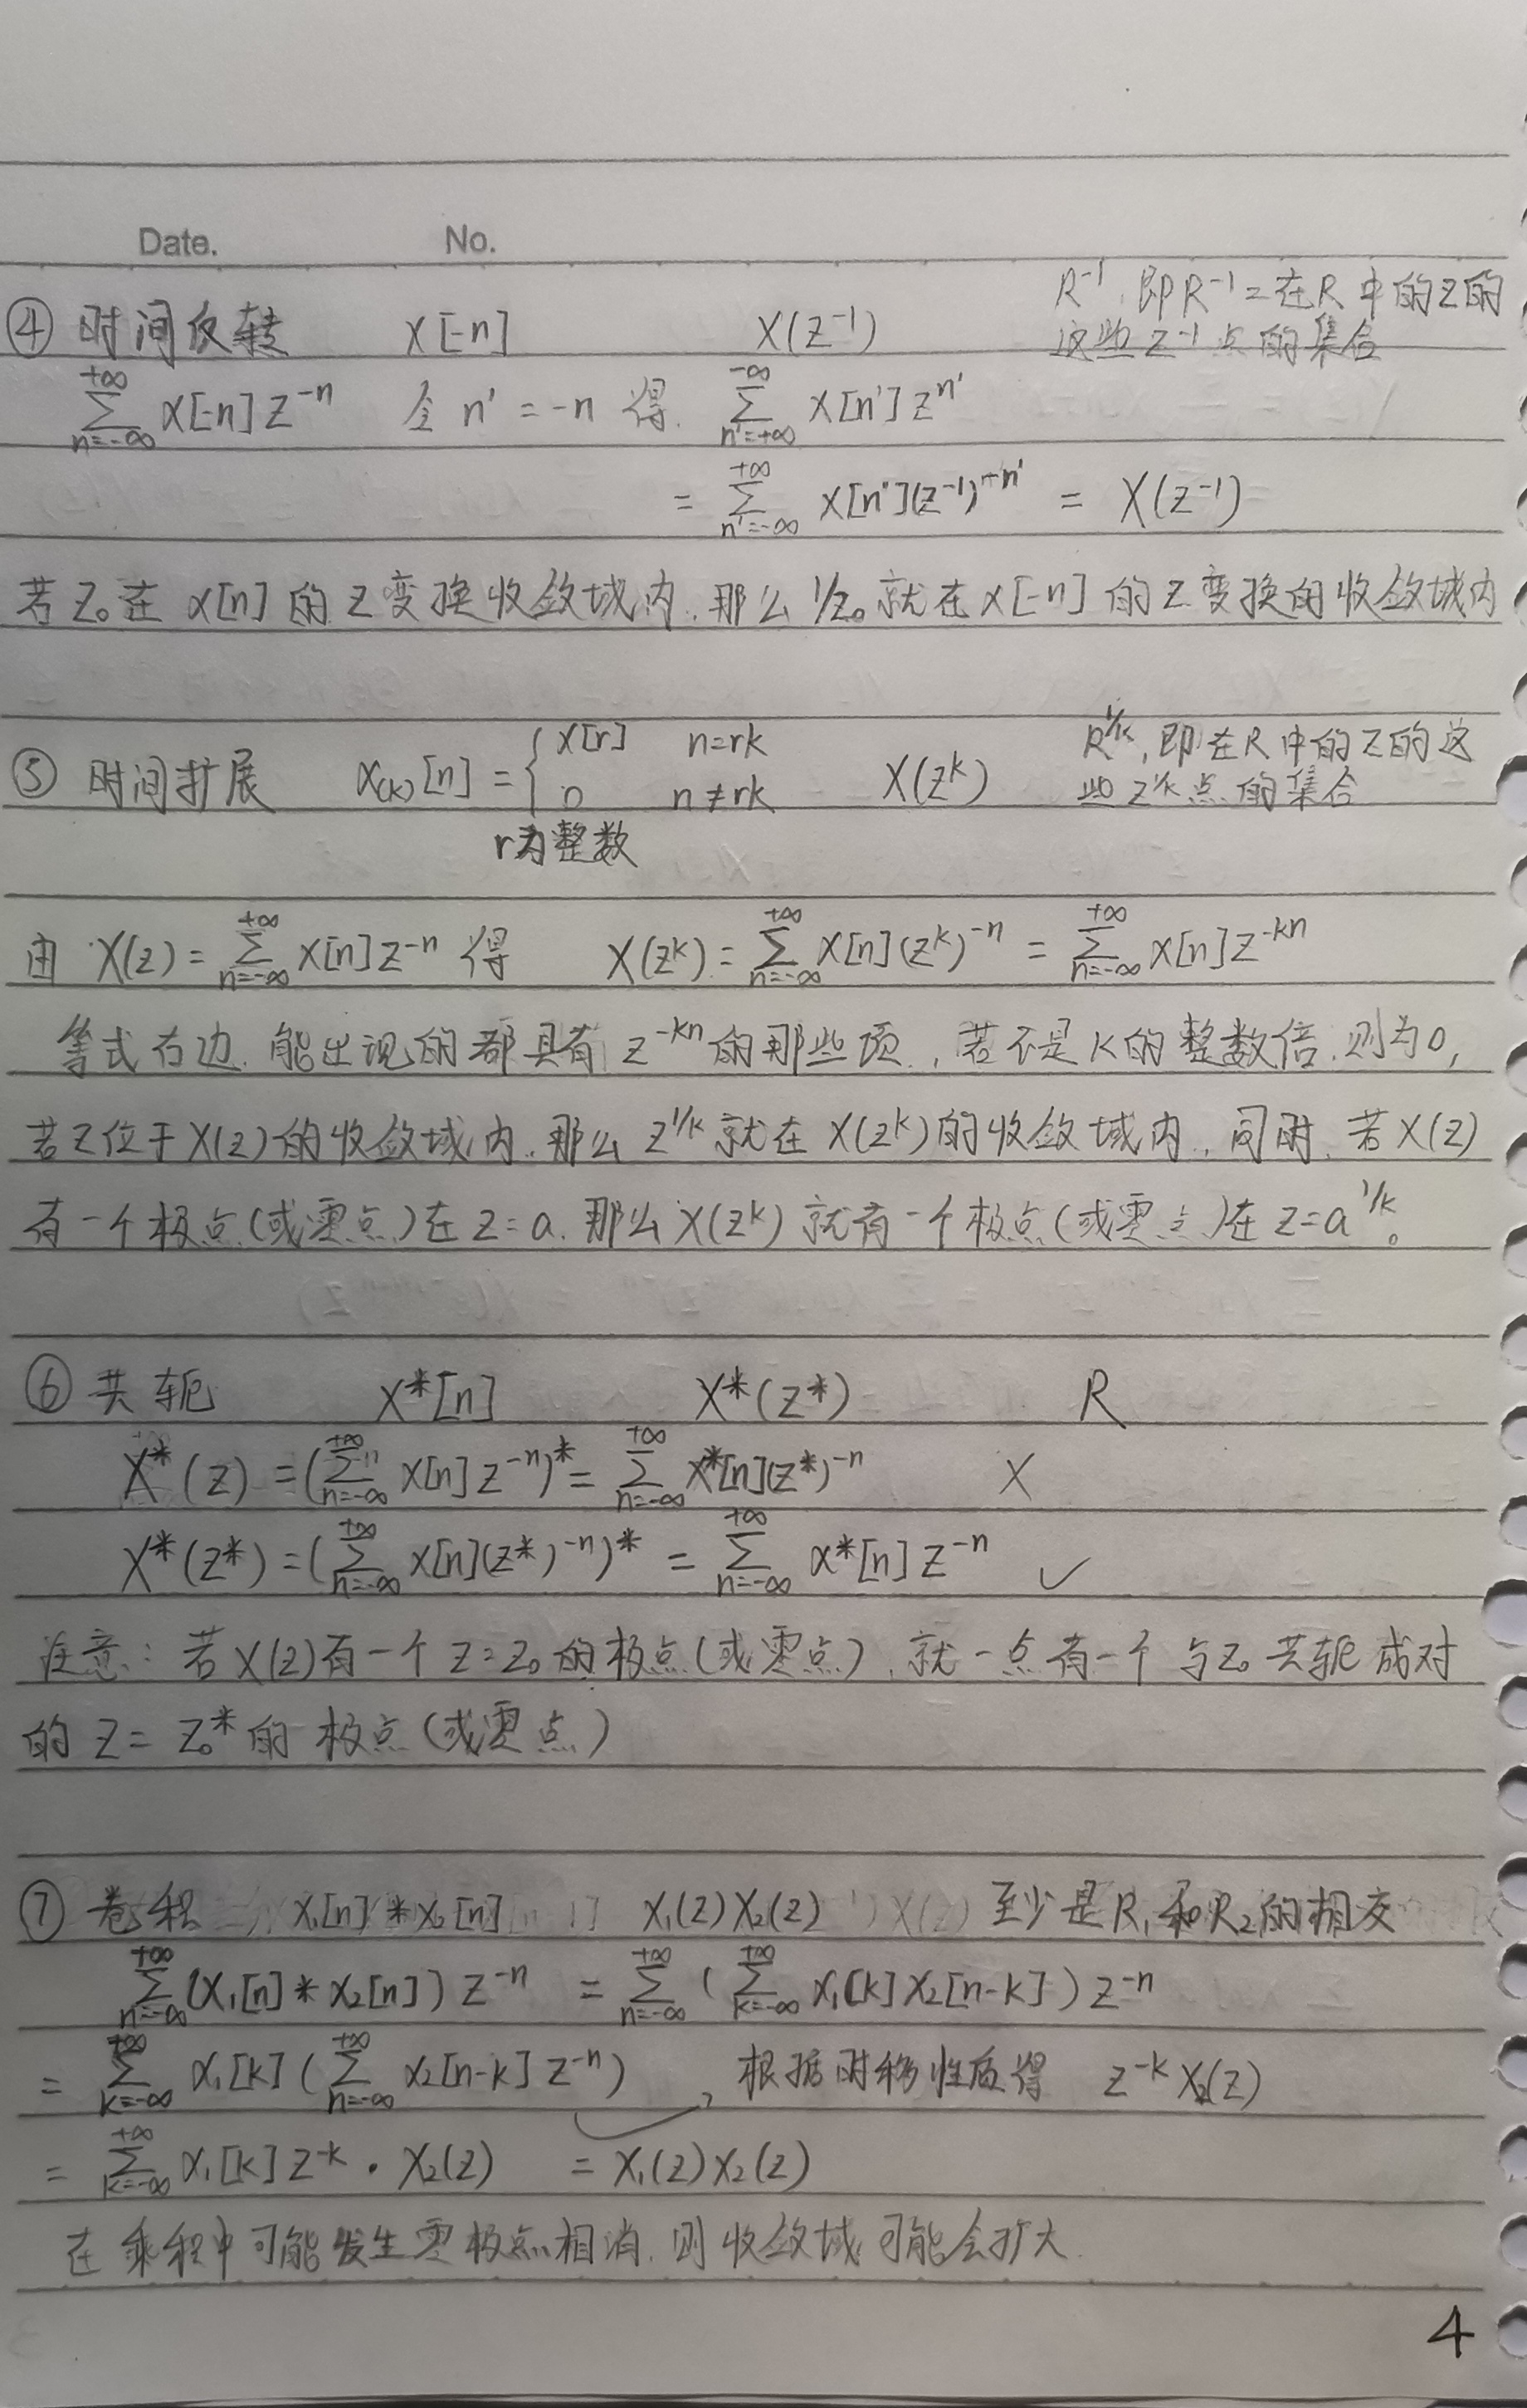 Date. No.
④ 时间反转 x[-n] X(z⁻¹) R⁻¹,即R⁻¹=在R中的z的
这些z⁻¹点的集合
∑_{n=-∞}^{+∞} x[-n]z⁻ⁿ 令 n' = -n 得. ∑_{n'=+∞}^{-∞} x[n']z^{n'}
= ∑_{n'=-∞}^{+∞} x[n'](z⁻¹)^{-n'} = X(z⁻¹)
若z₀在x[n]的z变换收敛域内,那么1/z₀就在x[-n]的z变换的收敛域内
⑤ 时间扩展 x₍ₖ₎[n] = { x[r] n=rk X(z^k) R^{1/k},即在R中的z的这
0 n≠rk 些z^{1/k}点的集合
r为整数
由 X(z) = ∑_{n=-∞}^{+∞} x[n]z⁻ⁿ 得 X(z^k) = ∑_{n=-∞}^{+∞} x[n](z^k)⁻ⁿ = ∑_{n=-∞}^{+∞} x[n]z^{-kn}
等式右边,能出现的都具有z^{-kn}的那些项,若不是k的整数倍,则为0,
若z位于X(z)的收敛域内,那么z^{1/k}就在X(z^k)的收敛域内,同时,若X(z)
有一个极点(或零点)在z=a.那么X(z^k)就有一个极点(或零点)在z=a^{1/k}。
⑥ 共轭 x*[n] X*(z*) R
X*(z) = (∑_{n=-∞}^{+∞} x[n]z⁻ⁿ)* = ∑_{n=-∞}^{+∞} x*[n](z*)⁻ⁿ ×
X*(z*) = (∑_{n=-∞}^{+∞} x[n](z*)⁻ⁿ)* = ∑_{n=-∞}^{+∞} x*[n]z⁻ⁿ ✓
注意:若X(z)有一个z=z₀的极点(或零点),就一点有一个与z₀共轭成对
的z=z₀*的极点(或零点)
⑦ 卷积 x₁[n]*x₂[n] X₁(z)X₂(z) 至少是R₁和R₂的相交
∑_{n=-∞}^{+∞} (x₁[n]*x₂[n])z⁻ⁿ = ∑_{n=-∞}^{+∞} (∑_{k=-∞}^{+∞} x₁[k]x₂[n-k])z⁻ⁿ
= ∑_{k=-∞}^{+∞} x₁[k](∑_{n=-∞}^{+∞} x₂[n-k]z⁻ⁿ) ,根据时移性质得 z^{-k}X₂(z)
= ∑_{k=-∞}^{+∞} x₁[k]z^{-k}·X₂(z) = X₁(z)X₂(z)
在乘积中可能发生零极点相消,则收敛域可能会扩大.
4